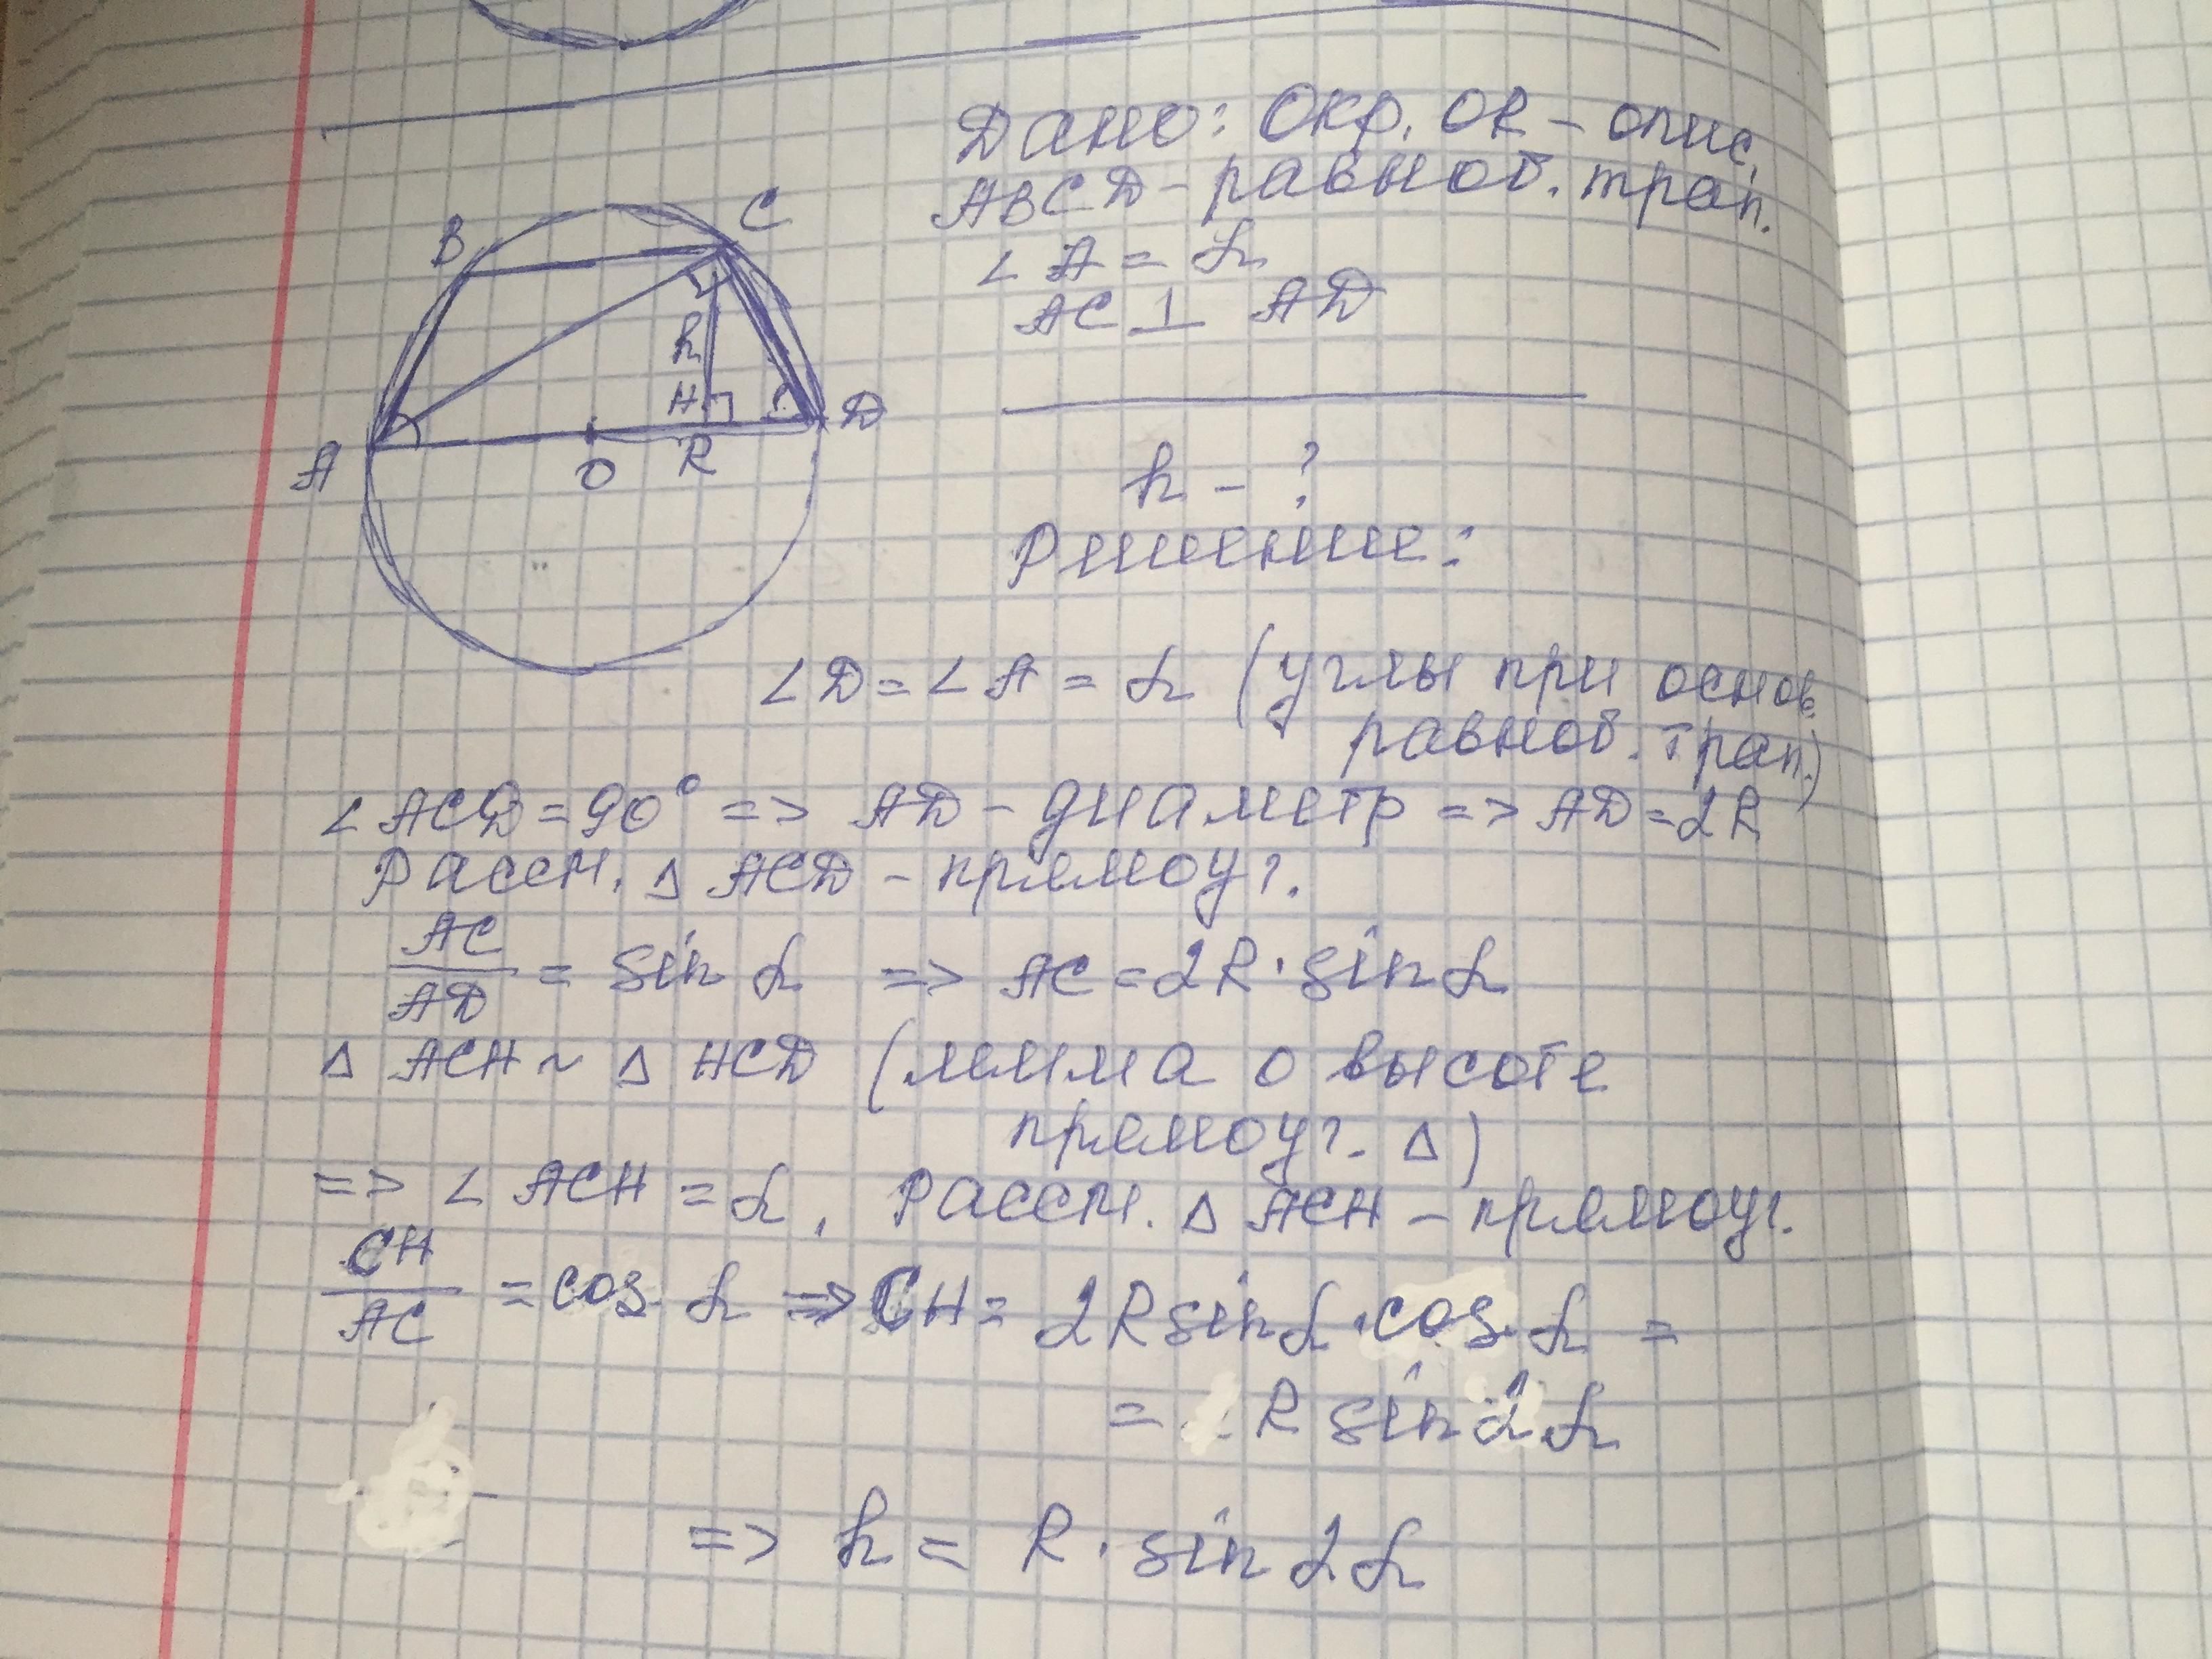 Дано: Окр. OR – опис.
ABCD – равноб. трап.
∠ A = α
AC ⊥ AD
B
C
h
H
A
O
R
D
h – ?
Решение:
∠D = ∠A = α (углы при основ.
равноб. трап.)
∠ACD = 90° => AD – диаметр => AD = 2R
Рассм. Δ ACD – прямоуг.
AC/AD = sin α => AC = 2R · sin α
Δ ACH ~ Δ HCD (лемма о высоте
прямоуг. Δ)
=> ∠ ACH = α. Рассм. Δ ACH – прямоуг.
CH/AC = cos α => CH = 2R sin α · cos α =
= R sin 2α
=> h = R · sin 2α